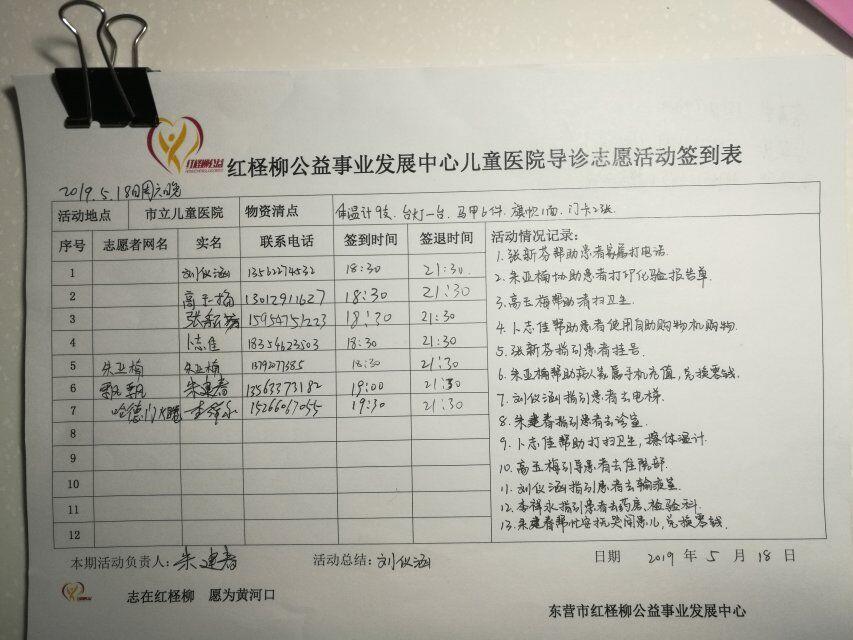 红柽柳公益
红柽柳公益事业发展中心儿童医院导诊志愿活动签到表
2019.5.18日周六晚
活动地点 市立儿童医院 物资清点 体温计9支、台灯一台、马甲6件、旗帜1面、门卡2张
序号 志愿者网名 实名 联系电话 签到时间 签退时间 活动情况记录:
1 刘仪涵 13562274532 18:30 21:30
2 高玉梅 13012911627 18:30 21:30
3 张新芬 15954751223 18:30 21:30
4 卜志佳 18354623503 18:30 21:30
5 朱亚梅 朱亚梅 1379277385 18:30 21:30
6 飘飘 朱建春 13563373182 19:00 21:30
7 哈德门大晓 李祥永 15266067055 19:30 21:30
8
9
10
11
12
1.张新芬帮助患者家属打电话.
2.朱亚梅协助患者打印化验报告单.
3.高玉梅帮助者扫卫生.
4.卜志佳帮助患者使用自助购物机购物.
5.张新芬指引患者挂号.
6.朱亚梅帮助病人家属手机充值,兑换零钱.
7.刘仪涵指引患者去电梯.
8.朱建春指引患者去诊室.
9.卜志佳帮助打扫卫生,擦体温计.
10.高玉梅引导患者去住院部.
11.刘仪涵指引患者去输液室.
12.李祥永指引患者去药房、检验科.
13.朱建春帮忙安抚哭闹患儿,兑换零钱.
本期活动负责人:朱建春 活动总结:刘仪涵 日期 2019年5月18日
志在红柽柳 愿为黄河口
东营市红柽柳公益事业发展中心